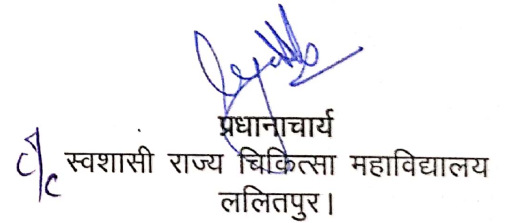 प्रधानाचार्य
c/c स्वशासी राज्य चिकित्सा महाविद्यालय
ललितपुर।